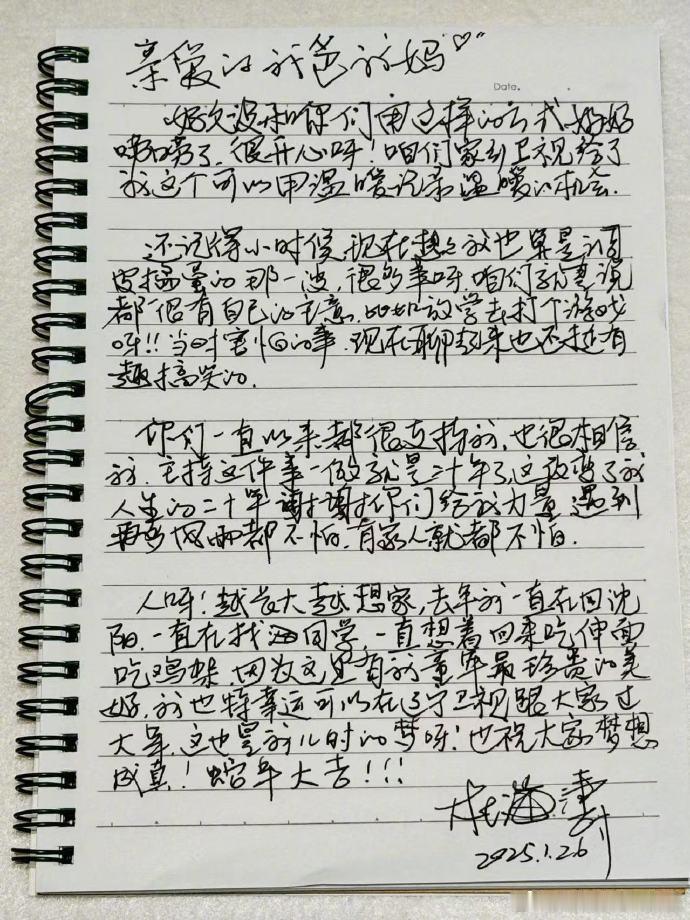 亲爱的我爸我妈
Date.
好久没和你们用这样的方式好好
唠唠了，很开心呀！咱们家乡卫视给了
我这个可以用温暖记录温暖的机会.
还记得小时候，现在想想我也算是调
皮捣蛋的那一波，很多事呀，咱们就要说
都很有自己的主意，比如放学去打个游戏
呀!! 当时害怕的事，现在聊起来也还挺有
趣搞笑的.
你们一直以来都很支持我，也很相信
我. 主持这件事一做就是二十年了，这改变了我
人生的二十年 谢谢你们给我力量，遇到
再多风雨都不怕. 有家人就都不怕.
人呀！越长大越想家，去年我一直在回沈
阳. 一直在找同学，一直想着回来吃抻面
吃鸡架，因为这里有我童年最珍贵的美
好. 我也特幸运可以在辽宁卫视跟大家过
大年，这也是我儿时的梦呀！也祝大家梦想
成真！蛇年大吉！!!
杜海涛
2025.1.26